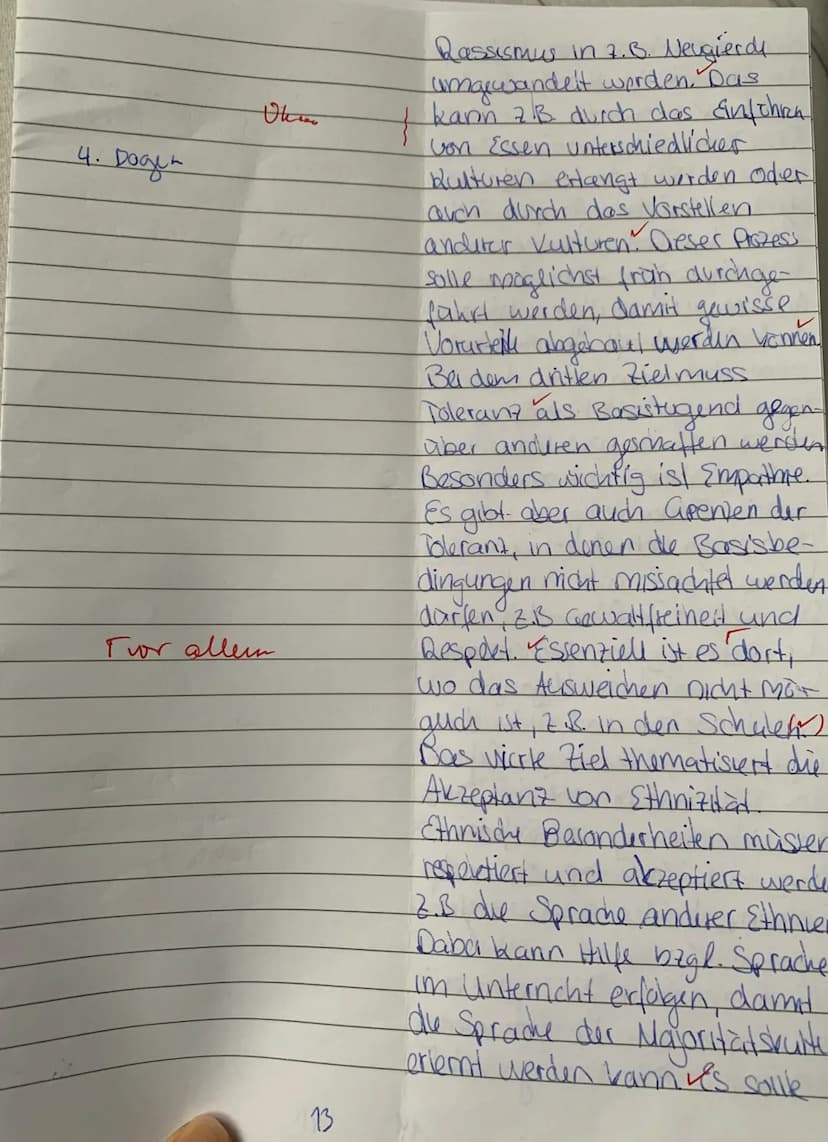 Rassismus in z.B. Neugierde
umgewandelt werden. Das
kann z.B durch das Einführen
von Essen unterschiedlicher
4. Bogen
Kulturen erlangt werden oder
auch durch das Vorstellen
anderer Kulturen. Dieser Prozess
solle möglichst früh durchge-
führt werden, damit gewisse
Vorurteile abgebaut werden können
Bei dem dritten Ziel muss
Toleranz als Basistugend gegen-
über anderen geschaffen werden
Besonders wichtig ist Empathie.
Es gibt aber auch Grenzen der
Toleranz, in denen die Basisbe-
dingungen nicht missachtet werden
dürfen, z.B Gewaltfreiheit und
Γ vor allem
Respekt. Essenziell ist es Γ dort,
wo das Ausweichen nicht mög-
lich ist, z.B. in den Schulen (✓)
Das vierte Ziel thematisiert die
Akzeptanz von Ethnizität.
Ethnische Besonderheiten müssen
respektiert und akzeptiert werde
z.B die Sprache anderer Ethnien
Dabei kann Hilfe bzgl. Sprache
im Unterricht erfolgen, damit
die Sprache der Majoritätskultu
erlernt werden kann es solle
13